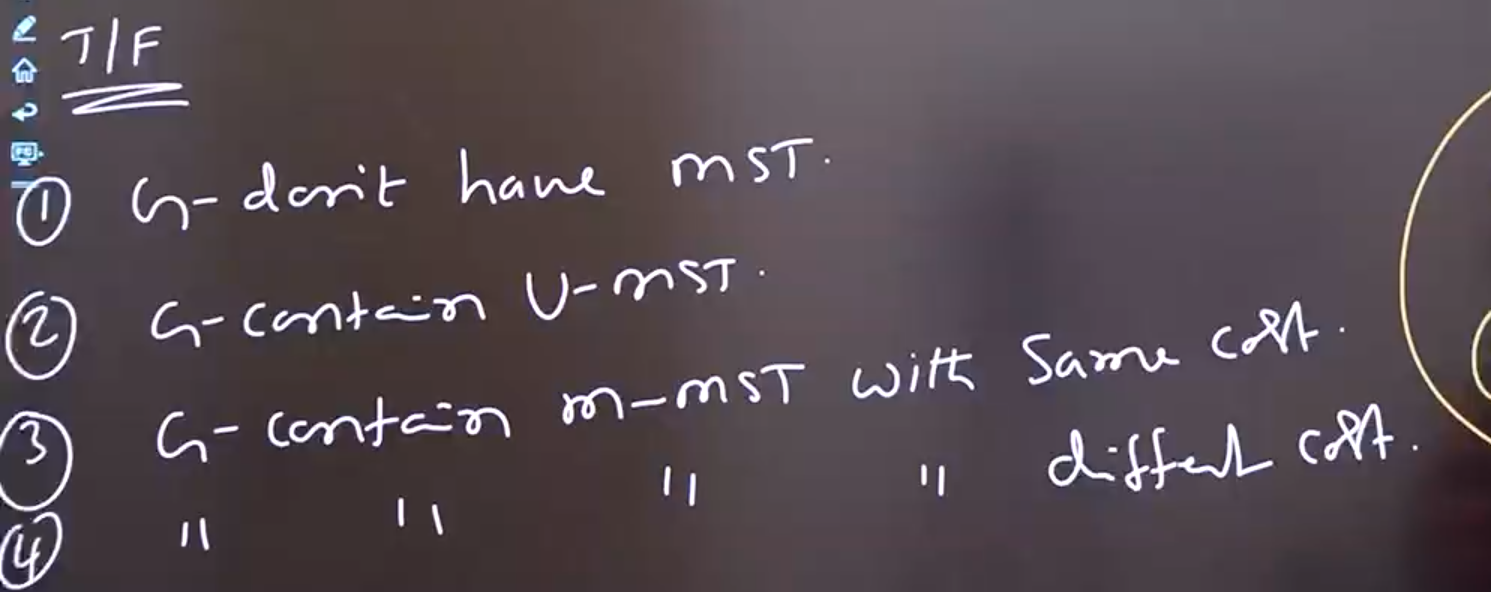 T/F
① G-don't have MST.
② G-contain U-MST.
③ G-contain m-MST with Same cost.
④ " " " " diffent cost.